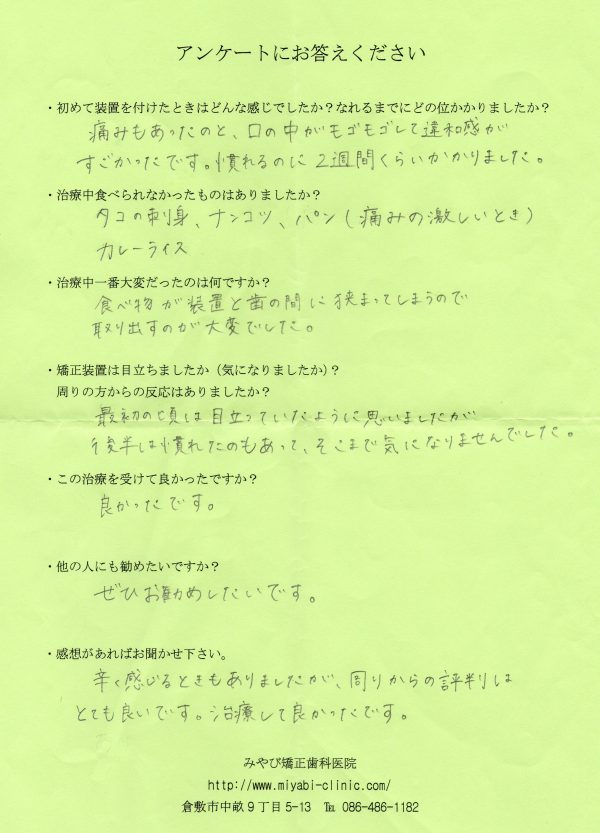 アンケートにお答えください
・初めて装置を付けたときはどんな感じでしたか？なれるまでにどの位かかりましたか？
痛みもあったのと、口の中がモゴモゴして違和感が
すごかったです。慣れるのに2週間くらいかかりました。
・治療中食べられなかったものはありましたか？
タコの刺身、ナンコツ、パン（痛みの激しいとき）
カレーライス
・治療中一番大変だったのは何ですか？
食べ物が装置と歯の間に挟まってしまうので
取り出すのが大変でした。
・矯正装置は目立ちましたか（気になりましたか）？
周りの方からの反応はありましたか？
最初の頃は目立っていたように思いましたが
後半は慣れたのもあって、そこまで気になりませんでした。
・この治療を受けて良かったですか？
良かったです。
・他の人にも勧めたいですか？
ぜひお勧めしたいです。
・感想があればお聞かせ下さい。
辛く感じるときもありましたが、周りからの評判は
とても良いです。治療して良かったです。
みやび矯正歯科医院
http://www.miyabi-clinic.com/
倉敷市中畝9丁目5-13 ℡ 086-486-1182